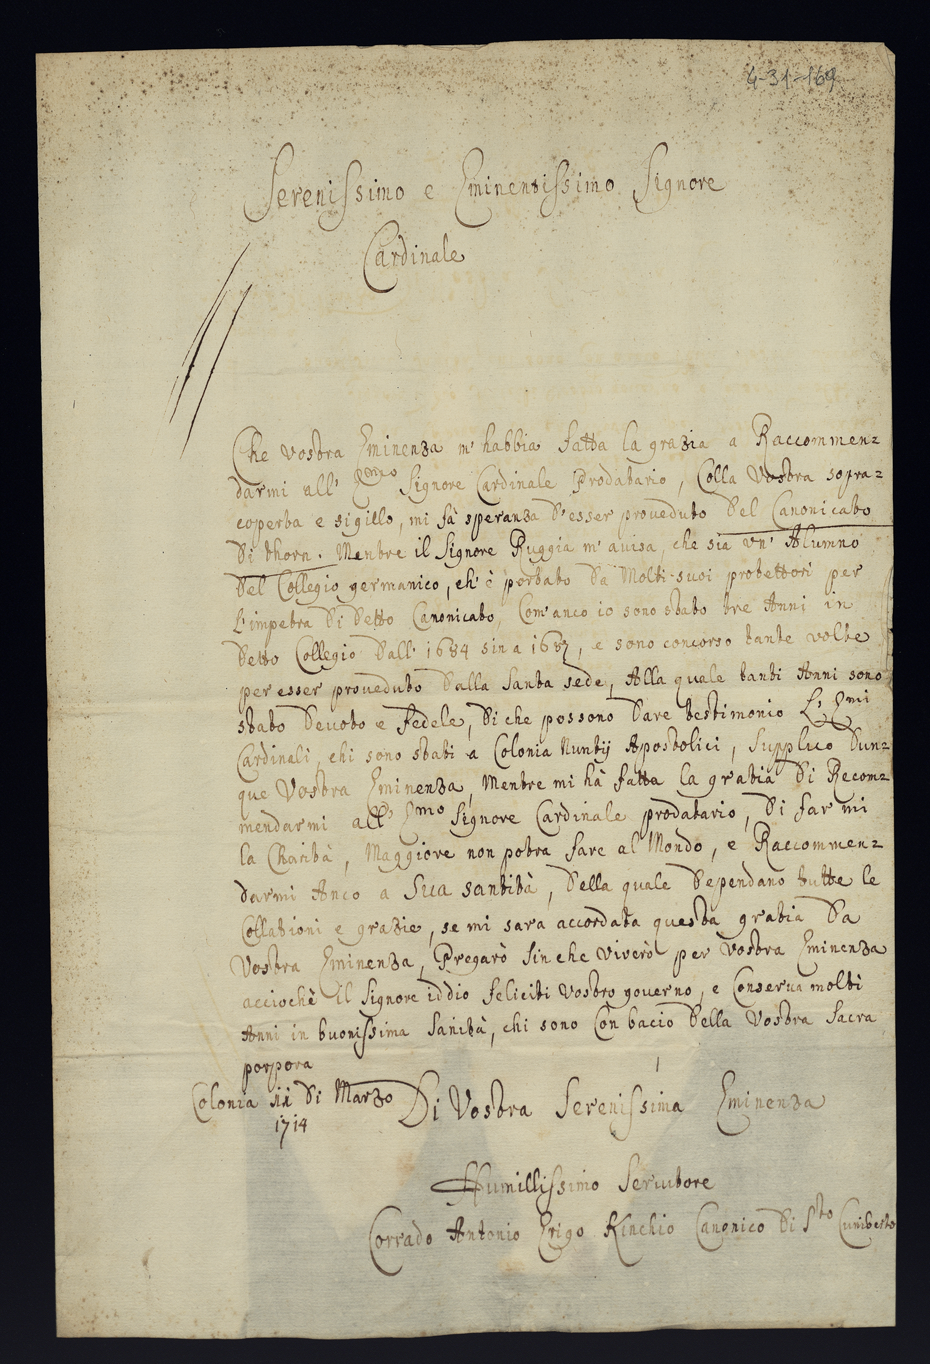 4-31-169
Serenissimo e Eminentissimo Signore
Cardinale
Che Vostra Eminenza m'habbia fatta la grazia a Raccommen=
darmi all' Emo Signore Cardinale Prodatario, Colla Vostra sopra=
coperta e sigillo, mi fà speranza d'esser proveduto del Canonicato
di thorn. Mentre il Signore Ruggia m'auisa, che sia vn' Alumno
del Collegio germanico, ch'è portato da Molti suoi protettori per
l'impetra di detto Canonicato, Com'anco io sono stato tre Anni in
detto Collegio dall' 1684 sin a 1687, e sono concorso tante volte
per esser proveduto dalla santa sede, Alla quale tanti Anni sono
stato devoto e fedele, di che possono dare testimonio Li Emi
Cardinali, chi sono stati a Colonia Nuntij Apostolici, supplico dun=
que Vostra Eminenza, Mentre mi hà fatta la gratia di Recom=
mendarmi all' Emo Signore Cardinale prodatario, di far mi
la Charità, Maggiore non potra fare al Mondo, e Raccommen=
darmi Anco a Sua santità, della quale dependano tutte le
Collationi e grazie, se mi sara accordata questa gratia da
Vostra Eminenza, Pregarò sin che viverò per Vostra Eminenza
acciochè il Signore iddio feliciti Vostro governo, e Conserva molti
Anni in buonissima sanità, chi sono Con bacio della Vostra sacra
porpora
Colonia 11 di Marzo
1714
Di Vostra Serenissima Eminenza
Humillissimo Servitore
Corrado Antonio Erigo Rinchio Canonico di Sto Cuniberto